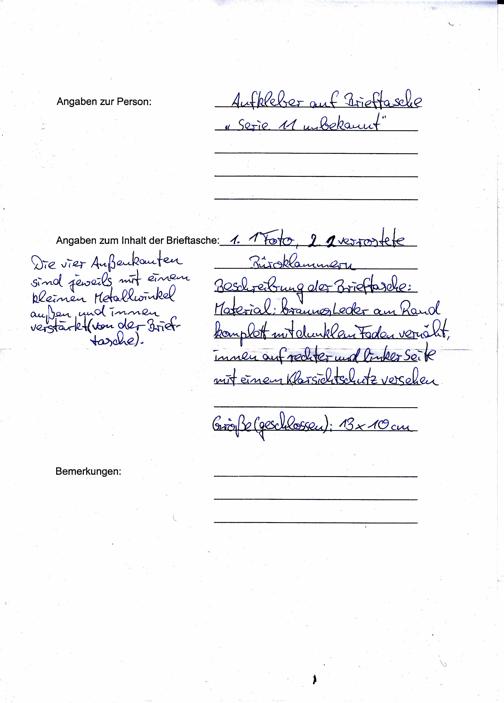 Angaben zur Person: Aufkleber auf Brieftasche
"Serie 11 unbekannt"
Angaben zum Inhalt der Brieftasche: 1. 1 Foto, 2. 2 verrostete
Büroklammern
Beschreibung der Brieftasche:
Material: braunes Leder am Rand
komplett mit dunklem Faden vernäht,
innen auf rechter und linker Seite
mit einem Klarsichtschutz versehen
Größe (geschlossen): 13 x 10 cm
Die vier Außenkanten
sind jeweils mit einem
kleinen Metallwinkel
außen und innen
verstärkt (von der Brief-
tasche).
Bemerkungen: